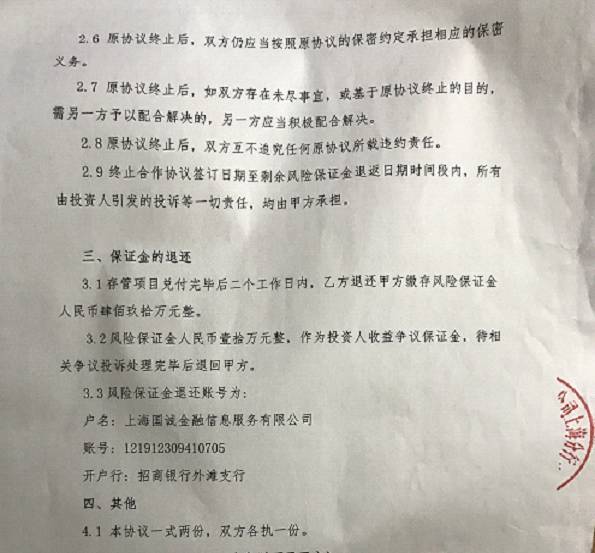 2.6 原协议终止后，双方仍应当按照原协议的保密约定承担相应的保密
义务。
2.7 原协议终止后，如双方存在未尽事宜，或基于原协议终止的目的，
需另一方予以配合解决的，另一方应当积极配合解决。
2.8 原协议终止后，双方互不追究任何原协议所载违约责任。
2.9 终止合作协议签订日期至剩余风险保证金退返日期时间段内，所有
由投资人引发的投诉等一切责任，均由甲方承担。
三、保证金的退还
3.1 存管项目兑付完毕后二个工作日内，乙方退还甲方缴存风险保证金
人民币肆佰玖拾万元整。
3.2 风险保证金人民币壹拾万元整，作为投资人收益争议保证金，待相
关争议投诉处理完毕后退回甲方。
3.3 风险保证金退还账号为：
户名：上海国诚金融信息服务有限公司
账号：121912309410705
开户行：招商银行外滩支行
四、其他
4.1 本协议一式两份，双方各执一份。
公司上海分行